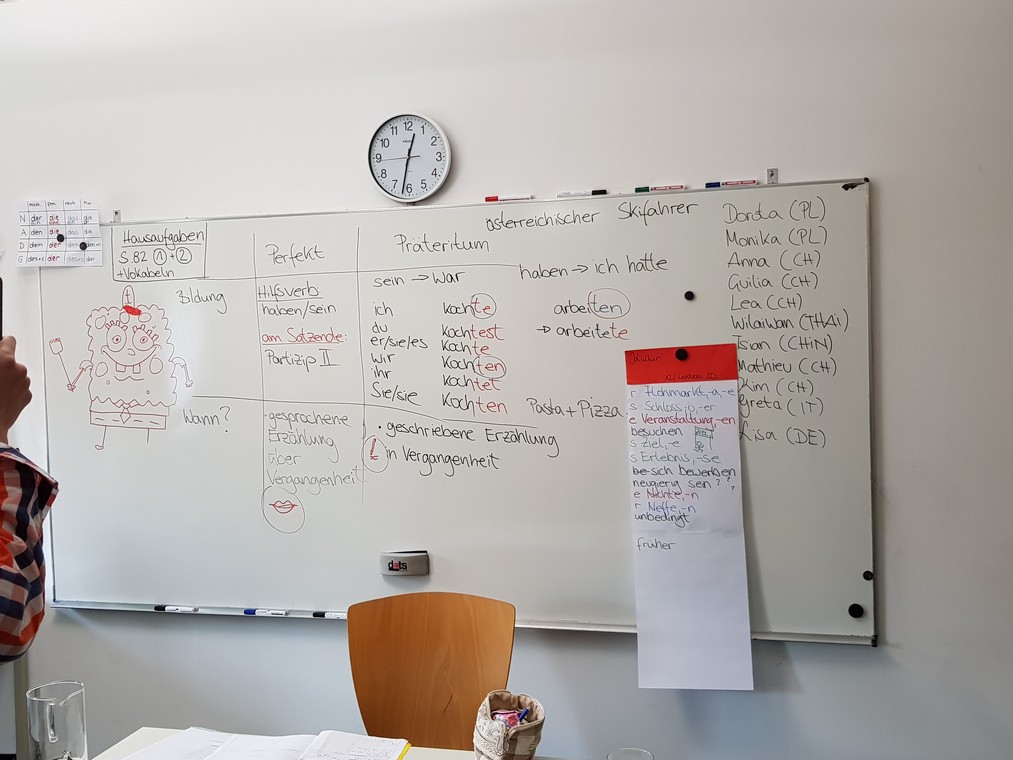 12
1
2
3
4
5
6
7
8
9
10
11
mask fem neutr
N der die das die
A den die das die
D dem der dem
G des+s der des+s der
Hausaufgaben
S. 82 1 + 2
+Vokabeln
Perfekt
Präteritum
österreichischer Skifahrer
sein → war
haben → ich hatte
t
Bildung
Hilfsverb:
haben/sein
am Satzende:
Partizip II
ich kochte
du kochtest
er/sie/es kochte
wir kochten
ihr kochtet
Sie/sie kochten
arbeiten
→ arbeitete
Pasta + Pizza
Wann?
· gesprochene
Erzählung
über
Vergangenheit
· geschriebene Erzählung
! in Vergangenheit
Dorota (PL)
Monika (PL)
Anna (CH)
Guilia (CH)
Lea (CH)
Wilaiwan (THAI)
Tsian (CHIN)
Mathieu (CH)
Kim (CH)
Greta (IT)
Lisa (DE)
Kultur
r Flohmarkt, -ä, -e
s Schloss, ö, -er
e Veranstaltung, -en
besuchen
s Ziel, -e
s Erlebnis, -se
be-sich bewerben
neugierig sein ? ? ?
e Nichte, -n
r Neffe, -n
unbedingt
früher
dots